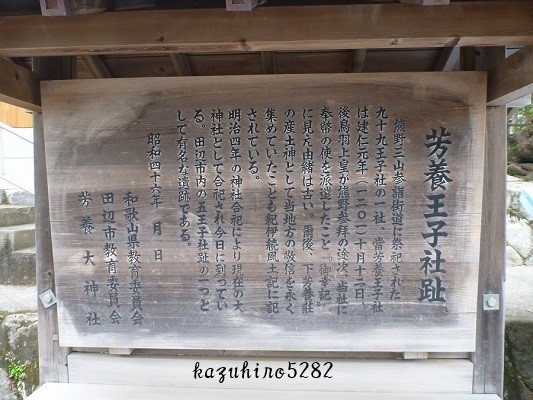 芳養王子社趾
熊野三山参詣街道に祭祀された
九十九王子社の一社、當芳養王子社
は建仁元年(一二〇一)十月十三日、
後鳥羽上皇が熊野参拜の途次、当社に
奉幣の使を派遣したこと『御幸記』
に見え由緒は古い。爾後、下芳養荘
の産土神として当地方の敬信を永く
集めていたことも紀伊続風土記に記
されている。
明治四年の神社合祀により現在の大
神社として合祀され今日に到ってい
る。田辺市内の五王子社趾の一つと
して有名な遺跡である。
昭和四十六年 月 日
和歌山県教育委員会
田辺市教育委員会
芳養大神社
kazuhiro5282